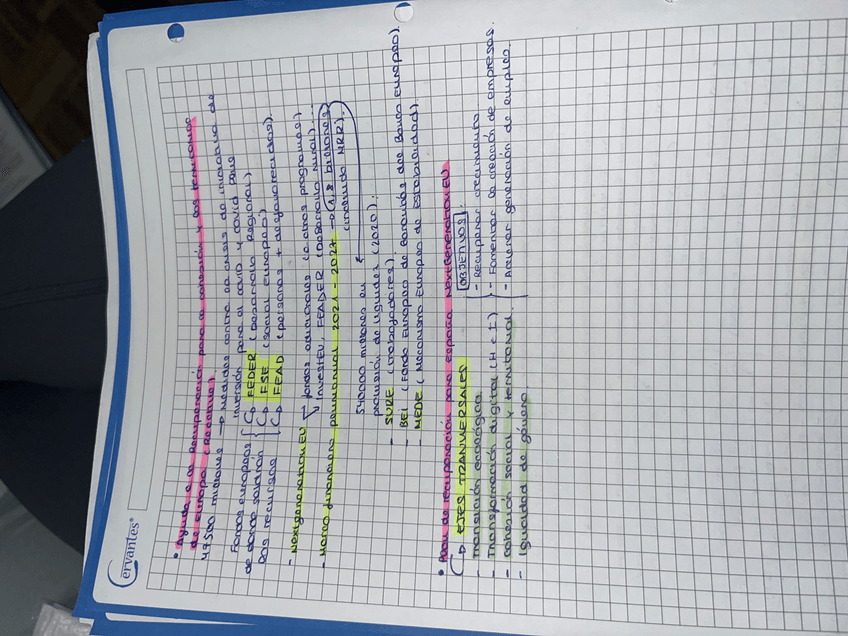 Cervantes®
• Ayuda a la Recuperación para la cohesión y los territorios
de Europa (REACT-UE)
47.500 millones → medidas contra la crisis de iniciativa de
inversión para el covid y covid plus
Fondos europeos
de donde saldrán
los recursos
↳ FEDER (Desarrollo Regional)
↳ FSE (social europeo)
↳ FEAD (personas + desfavorecidas).
- NextgenerationEU → fondos adicionales (a otros programas)
↳ InvestEU, FEADER (Desarrollo rural)...
- Marco financiero plurianual 2021-2027 → (1,8 billones)
(incluido MRR).
540000 millones eu
provisión de liquidez (2020):
- SURE (trabajadores).
- BEI (Fondo Europeo de Garantías del Banco europeo).
- MEDE (Mecanismo Europeo de estabilidad)
• Plan de recuperación para España NextGenerationEU.
↳ EJES TRANVERSALES
- Transición ecológica
- Transformación digital (H e I)
- cohesión social y territorial.
- Igualdad de género.
OBJETIVOS:
- Recuperar crecimiento
- Fomentar la creación de empresas.
- Acelerar generación de empleo.